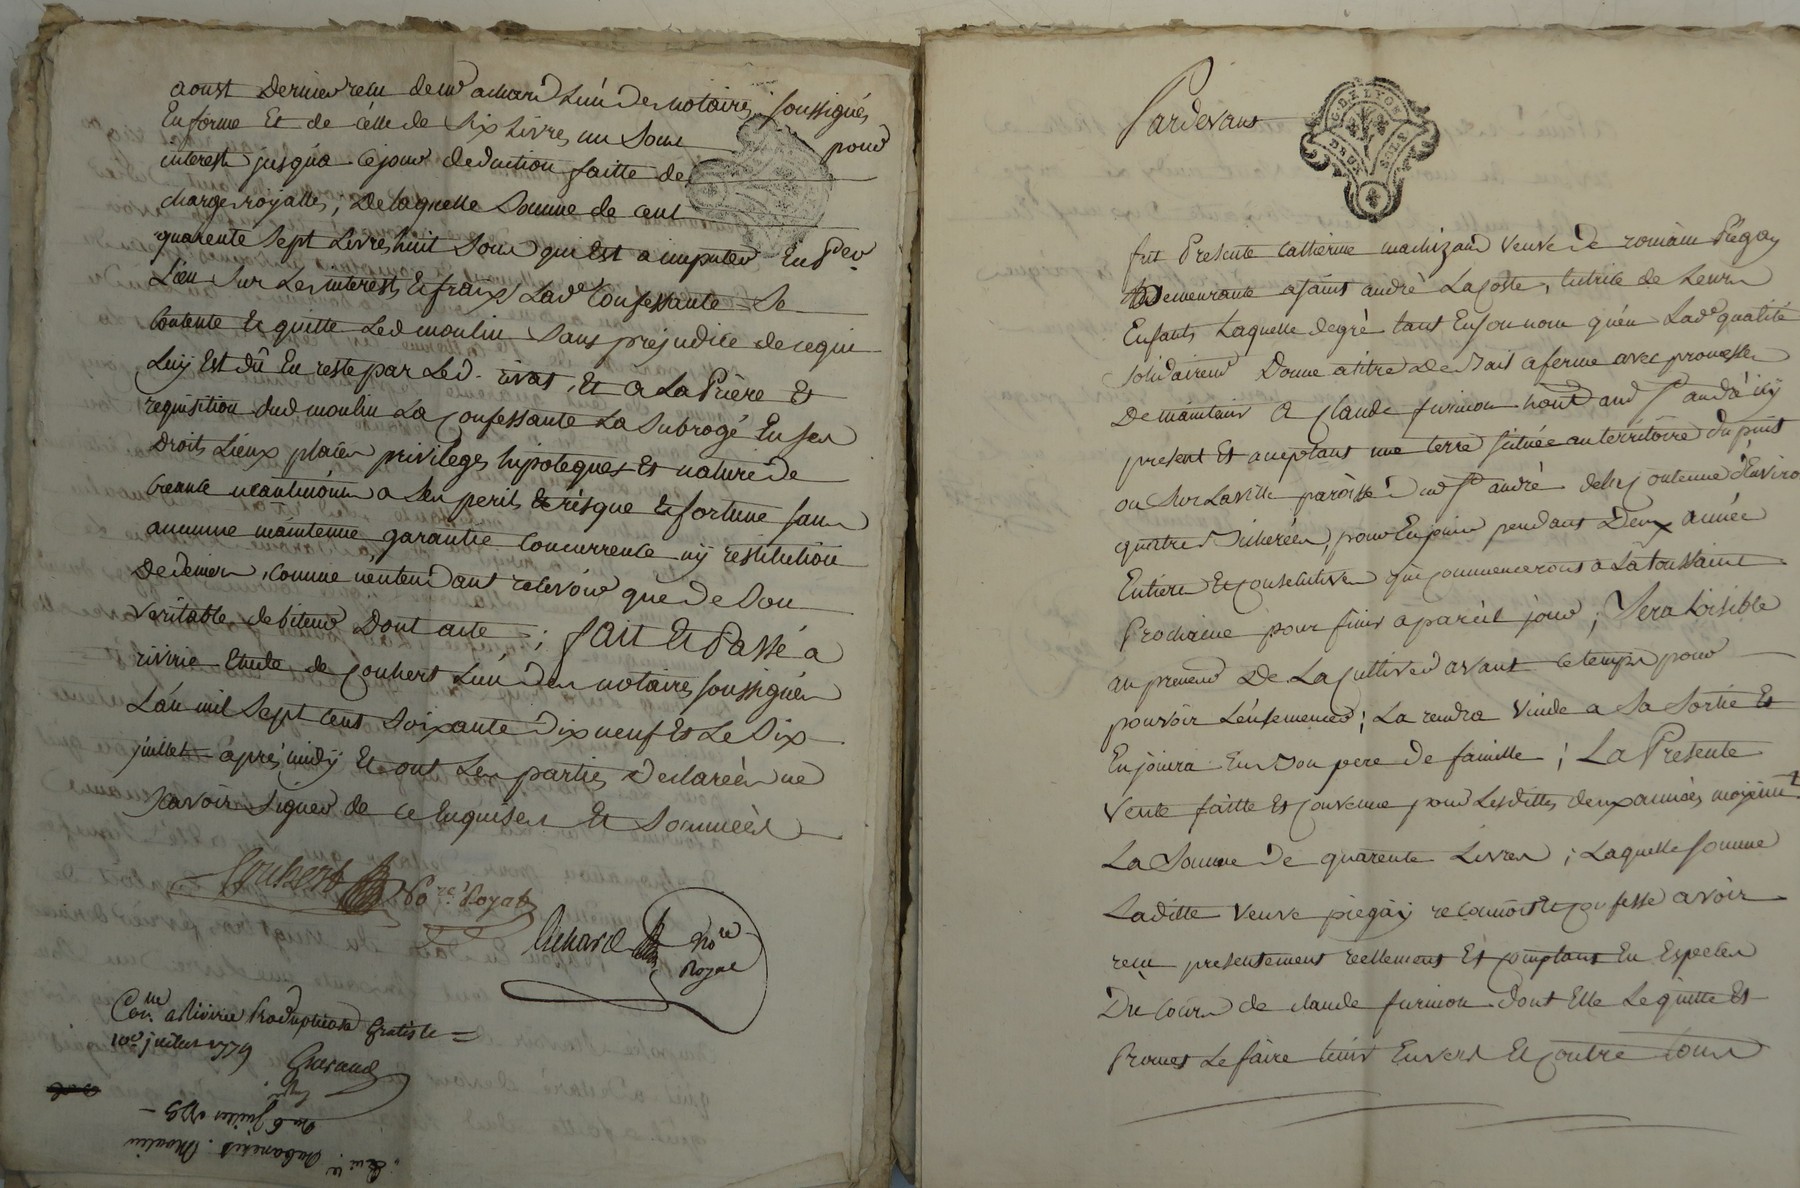 aoust dernier recu de me achard l'un des notaires soussignés
En forme Et de célle de six Livres un sous pour
interest jusqu'a ce jour deduction faitte des
charges roÿalles; De laquelle Somme de cent
quarente sept Livres huit sous qui Est a imputer En per
Lieu sur Les interests & fraix Lade Confessante Se
Contente & quitte Led moulin sans préjudice de ce qui
Luÿ Est dû En reste par Led. rivat, Et a La Prière Et
requisition dud moulin La Confessante La Subrogé En ses
Droits Lieux places privileges hipoteques Et nature de
Creance neantmoins a ses perils & risque & fortune sans
aucunne maintenue garantie Concurrence nÿ restitution
De deniers, comme n'entendant recevoir que de Son
veritable debiteur Dont acte; fait & Passé a
riverie Etude de Goubert L'un des notaires soussignés
L'an mil Sept Cent Soixante Dix neuf Et Le Six
juillet aprés midÿ Et ont Les parties Declarées ne
scavoir signer de ce Enquises Et Sommées
Goubert Royal
Achard Nore
Royal
Con.lle a Riverie gratis le
10e juillet 1779
Du 6 juillet 1779
Moulin
Pardevant
G. DE LYON
DEUX SOLS
fut Presente Catherine machizaud veuve de romain Piegaÿ
Demeurante a saint andré La Coste, tutrice de Leurs
Enfants Laquelle de gré tant En son nom qu'en Lade qualité
solidairemt Donne a titre de Bail a ferme avec promesse
De maintenir a Claude furnion dud St andré icÿ
présent Et acceptant une terre située au territoire du puit
ou sur La ville paroisse dud St andré delaÿ Contenue d'Enviro
quatre Bicherées, pour En jouir pendant Deux année
Entiere Et Consécutives qui Commenceront a La toussaint
Prochaine pour finir a pareil jour; Sera Loisible
au preneur De La Cultiver avant ce temps pour
pouvoir L'ensemencer; La rendra Vuide a Sa Sortie Et
En jouira En Bon pere de famille; La Presente
vente faitte Et Convenue pour Lesdittes deux années moÿennt
La Somme de quarente Livres; Laquelle Somme
Laditte veuve piegaÿ reconnoist & Confesse avoir
recu presentement réellement Et Comptant En Especes
Du Cours de claude furnion Dont Elle Le quitte Et
Promet Le faire tenir Envers Et Contre tous